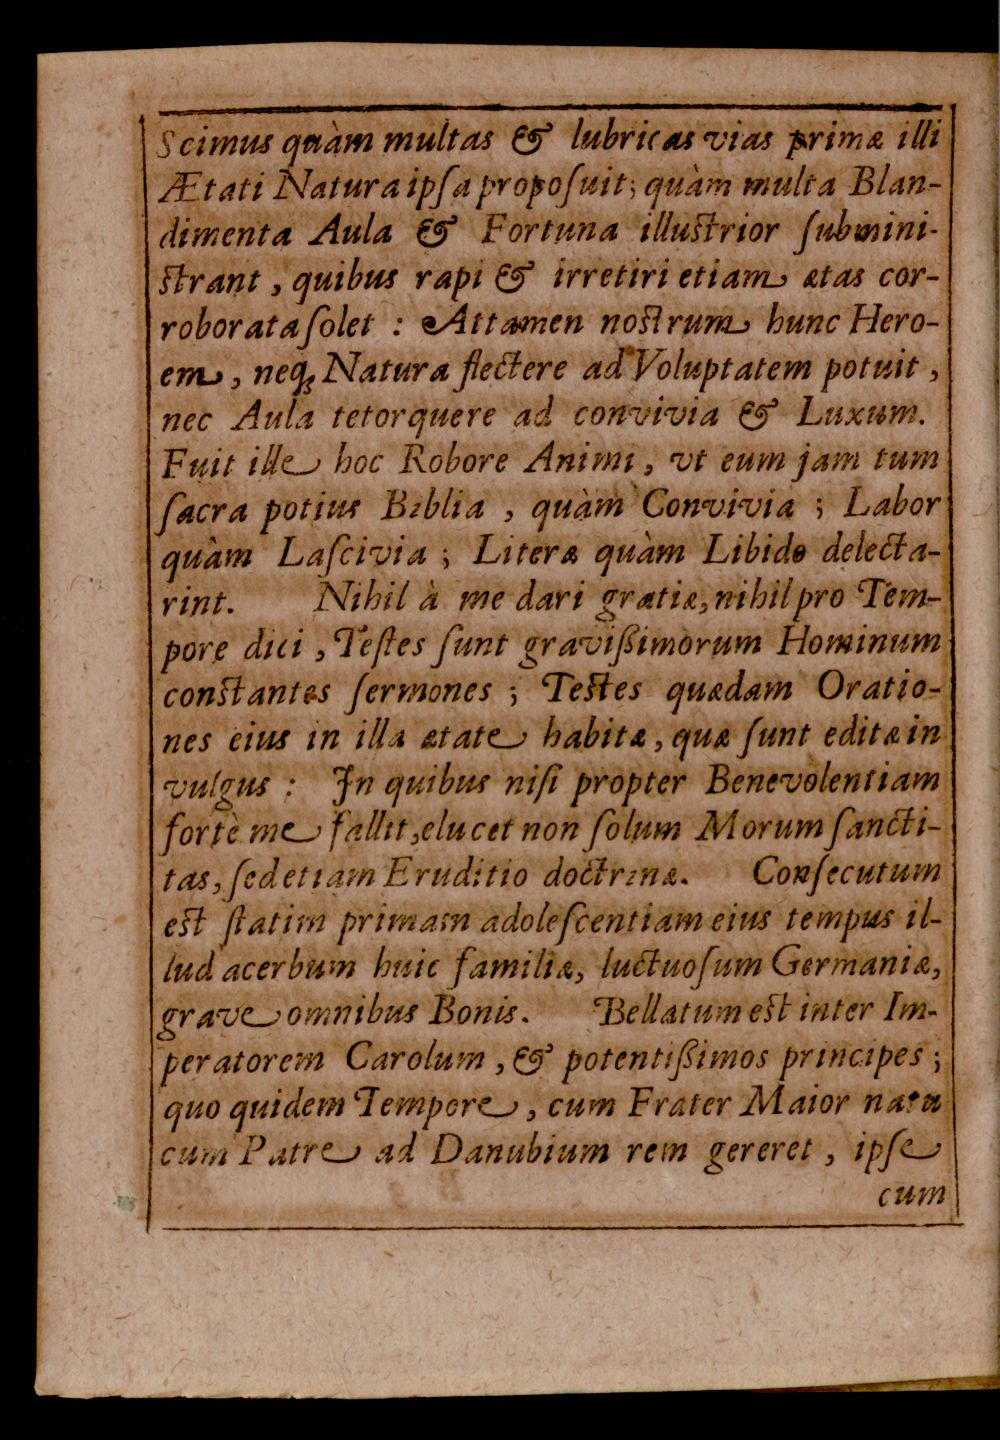 Scimus quàm multas & lubricas vias primæ illi
Ætati Natura ipſa propoſuit; quàm multa Blan-
dimenta Aula & Fortuna illuſtrior ſubmini-
ſtrant, quibus rapi & irretiri etiam ætas cor-
roborata ſolet : Attamen noſtrum hunc Hero-
em, neq; Natura flectere ad Voluptatem potuit,
nec Aula tetorquere ad convivia & Luxum.
Fuit ille hoc Robore Animi, vt eum jam tum
ſacra potius Biblia, quàm Convivia ; Labor
quàm Laſcivia ; Literæ quàm Libido delecta-
rint. Nihil à me dari gratiæ, nihil pro Tem-
pore dici, Teſtes ſunt graviſſimorum Hominum
conſtantes ſermones ; Teſtes quædam Oratio-
nes eius in illa ætate habitæ, quæ ſunt editæ in
vulgus : In quibus niſi propter Benevolentiam
fortè me fallit, elucet non ſolum Morum ſancti-
tas, ſed etiam Eruditio doctrinæ. Conſecutum
eſt ſtatim primam adoleſcentiam eius tempus il-
lud acerbum huic familiæ, luctuoſum Germaniæ,
grave omnibus Bonis. Bellatum eſt inter Im-
peratorem Carolum, & potentiſſimos principes ;
quo quidem Tempore, cum Frater Maior natu
cum Patre ad Danubium rem gereret, ipſe
cum